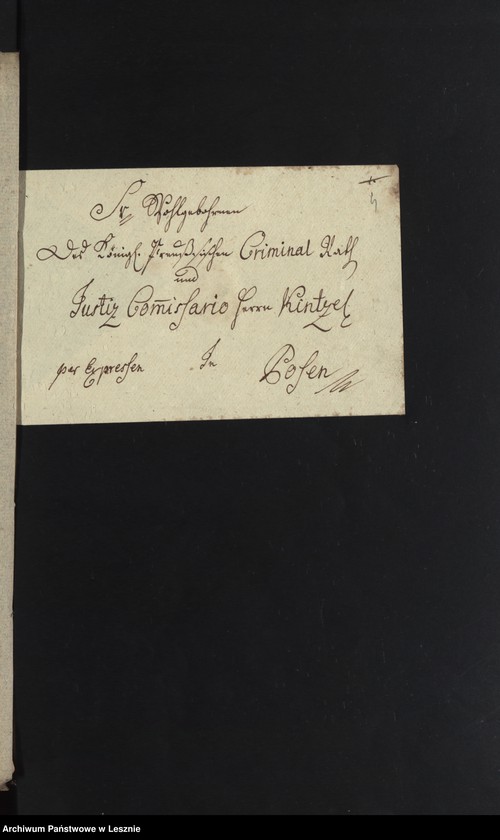 Sr. Wohlgebohrnen
Des Königl. Preußischen Criminal Rath
und
Justiz Com̅issario Herrn Kintzel
per Expressen In Posen
Archiwum Państwowe w Lesznie